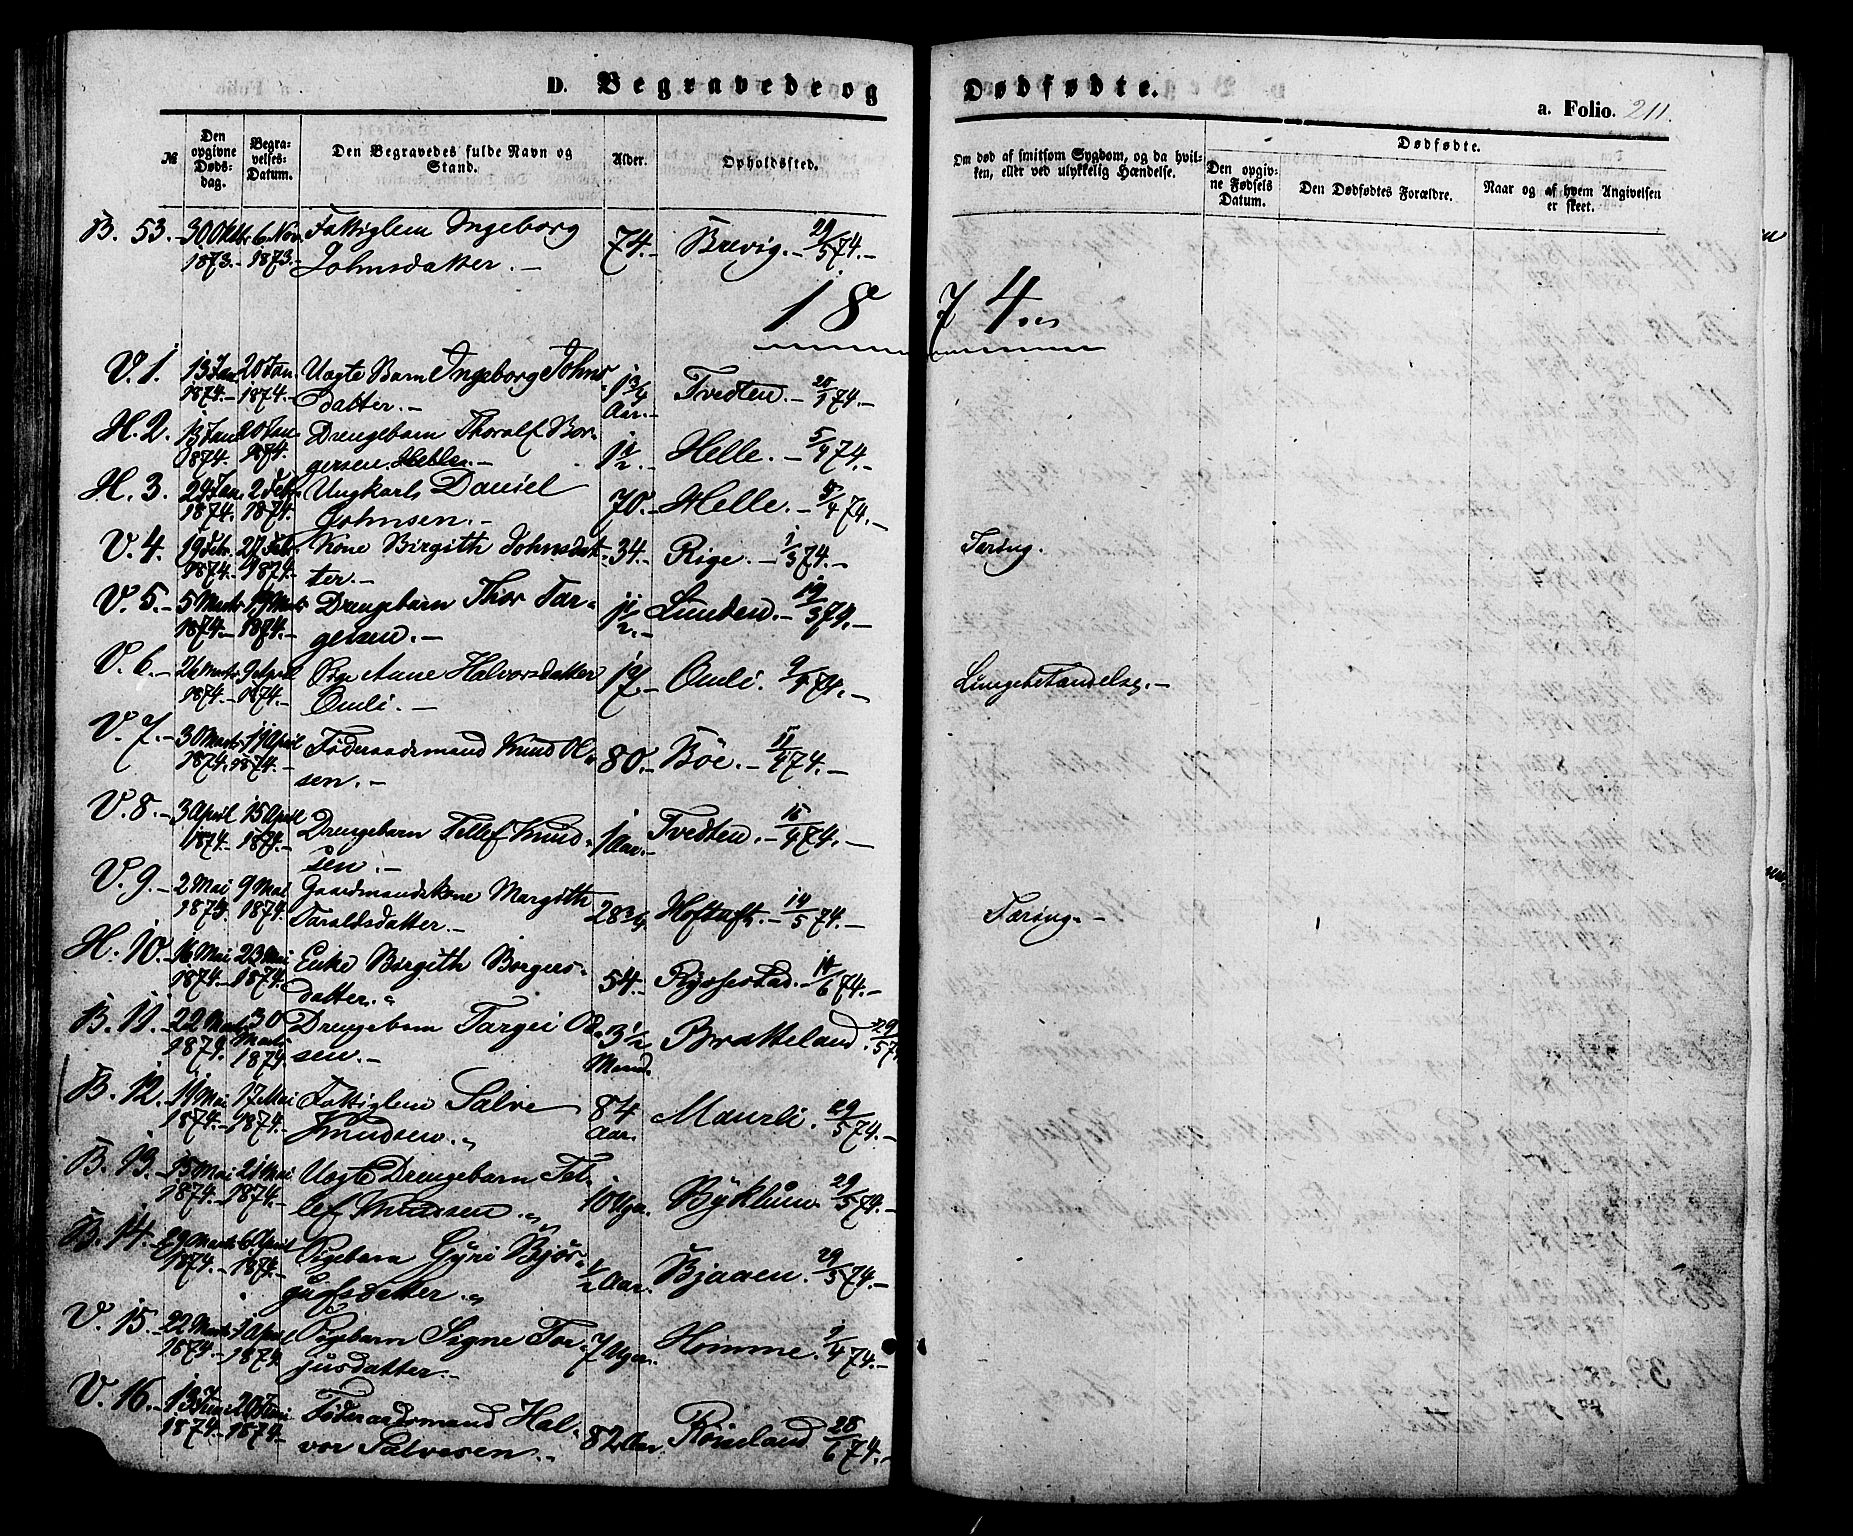 D. Begravede og Dødfødte.
a. Folio. 211.
№ Den opgivne Dødsdag. Begravelses-Datum. Den Begravedes fulde Navn og Stand. Alder. Opholdssted. Om død af smitsom Sygdom, og da hvilken, eller ved ulykkelig Hændelse. Dødfødte.
Den opgivne Fødsels Datum. Den Dødfødtes Forældre. Naar og af hvem Angivelsen er skeet.
B. 53. 30 Oktbr 6 Nov. Fattiglem Ingeborg 74.- Brevig.- 29/5 74.-
1873.- 1873.- Johnsdatter.-
1874
V. 1. 13 Jan 20 Jan. Uægte Barn Ingeborg Johns- 1 3/4 Tvedten.- 74.-
1874.- 1874.- datter.- Aar.-
H. 2. 13 Jan 20 Jan. Drengebarn Thoralf Bor- 1 1/2.- Helle.- 5/4 74.-
1874. 1874. gersen Helle.-
H. 3. 24 Jan. 2 Feb. Ungkarl Daniel 70.- Helle.- 5/4 74.-
1874. 1874. Johnsen.-
V. 4. 19 Febr. 27 Febr. Kone Birgith Johnsdat- 34.- Rige.- 1/3 74.- Tæring.
1874.- 1874.- ter.-
V. 5.- 5 Marts 19 Marts Drengebarn Thor Tar- 1 1/2.- Lunden.- 19/3 74.-
1874.- 1874.- gesen.-
V. 6.- 26 Marts 9 April Pige Aane Halvorsdatter 17.- Omli. 9/4 74.- Lungebetændelse.-
1874.- 1874.- Omli.-
V. 7.- 30 Marts 11 April Føderaadsmand Knud Ol- 80.- Böe.- 11/4 74.-
1874. 1874.- sen.-
V. 8.- 3 April 15 April Drengebarn Tellef Knud- 1 Aar.- Tvedten.- 15/4 74.-
1874.- 1874.- sen.-
V. 9.- 2 Mai 9 Mai Gaardmandskone Margith 28 3/4 Hoftuft.- 14/5 74.- Tæring.-
1874. 1874.- Taraldsdatter.-
H. 10.- 16 Mai 23 Mai Enke Birgith Borgers- 54.- Ryssestad.- 14/6 74.-
1874.- 1874.- datter.
B. 11. 22 Marts 30 Marts Drengebarn Targei Ol- 3 1/2 Bratteland. 29/5 74
1874.- 1874. sen.- Maand.
B. 12. 11 Mai 17 Mai Fattiglem Salve 84 Maurli. 29/5 74.-
1874.- 1874.- Knudsen. Aar.
B. 13. 15 Mai 21 Mai Uægte Drengebarn Tel- 10 Uger. Byklum. 29/5 74.-
1874.- 1874.- lef Knudsen.
B. 14.- 29 Marts 6 April Pigebarn Gyri Bjør- 1/2 Aar. Bjaaen. 29/5 74.-
1874.- 1874.- gufsdatter.
V. 15.- 22 Marts 1 April Pigebarn Signe Tor- 7 Uger. Homme. 1/4 74.-
1874.- 1874. jusdatter.-
V. 16.- 13 Juni 20 Juni Føderaadsmand Hal- 82 Aar. Röisland 28/6 74.-
1874.- 1874.- vor Salvesen.-